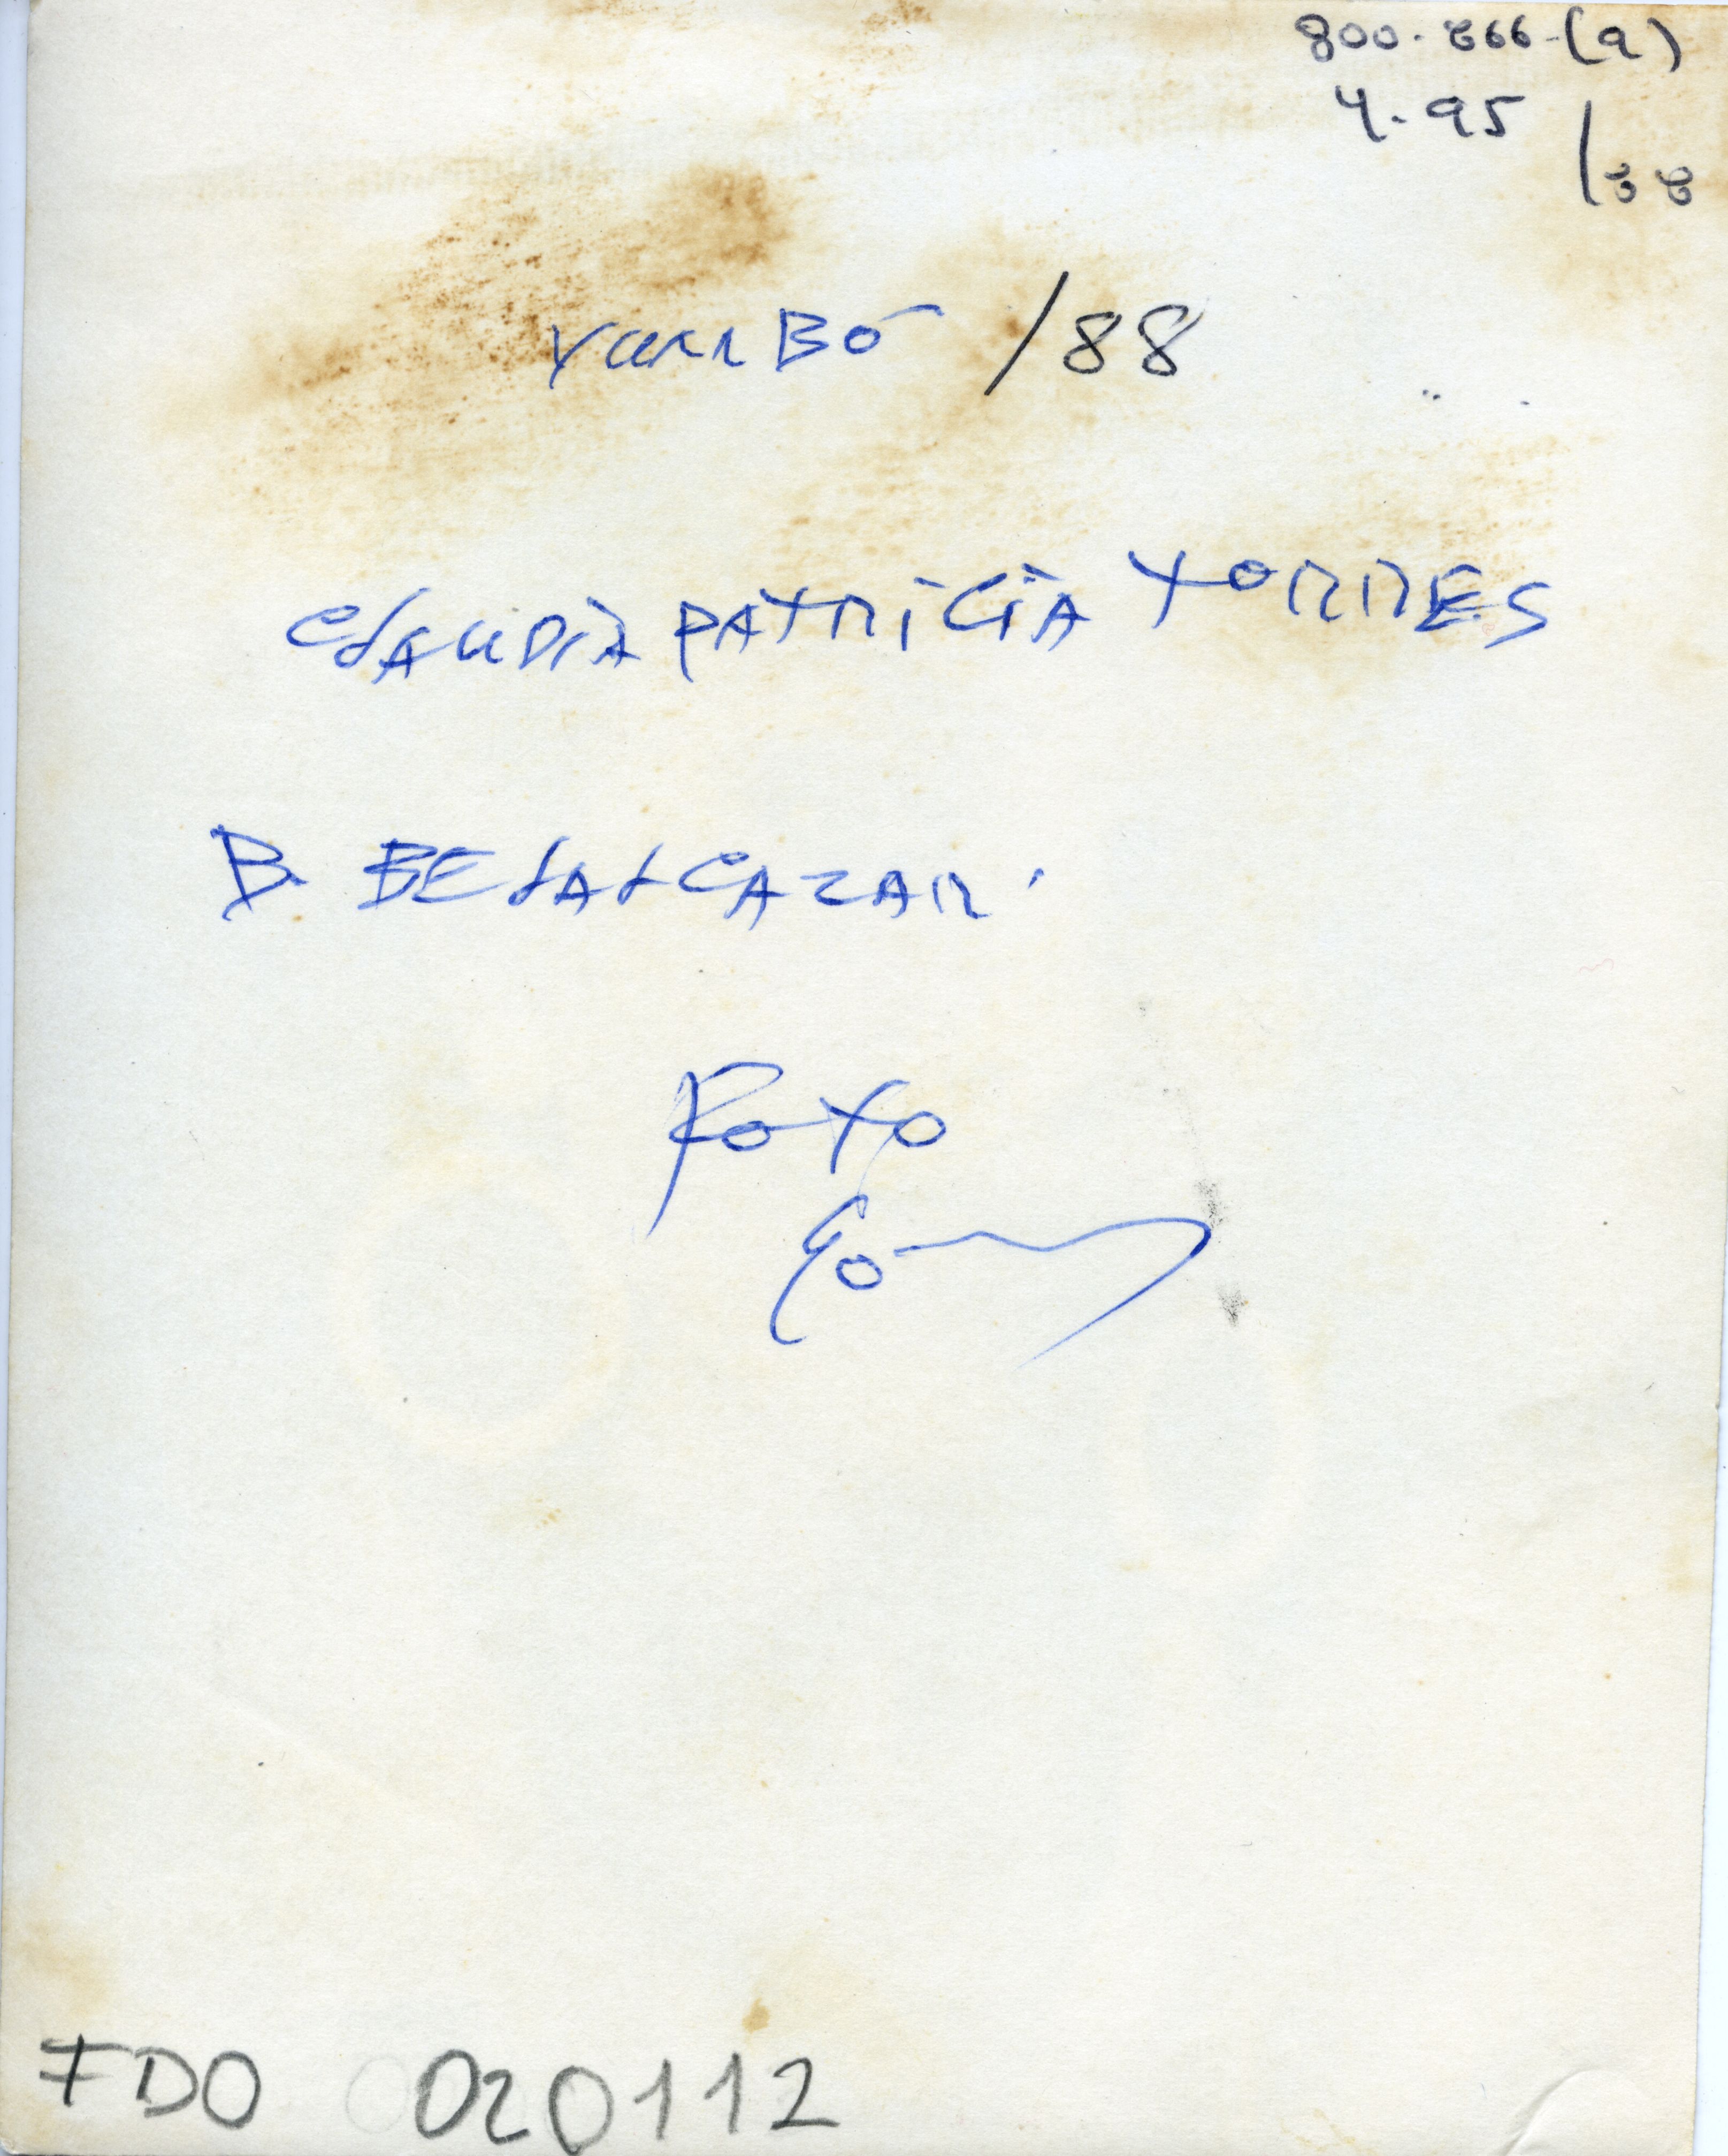 800.266-(a)
4.95
/88
YUMBO /88
CLAUDIA PATRICIA TORRES
B. BELALCAZAR.
Foto
FDO 020112